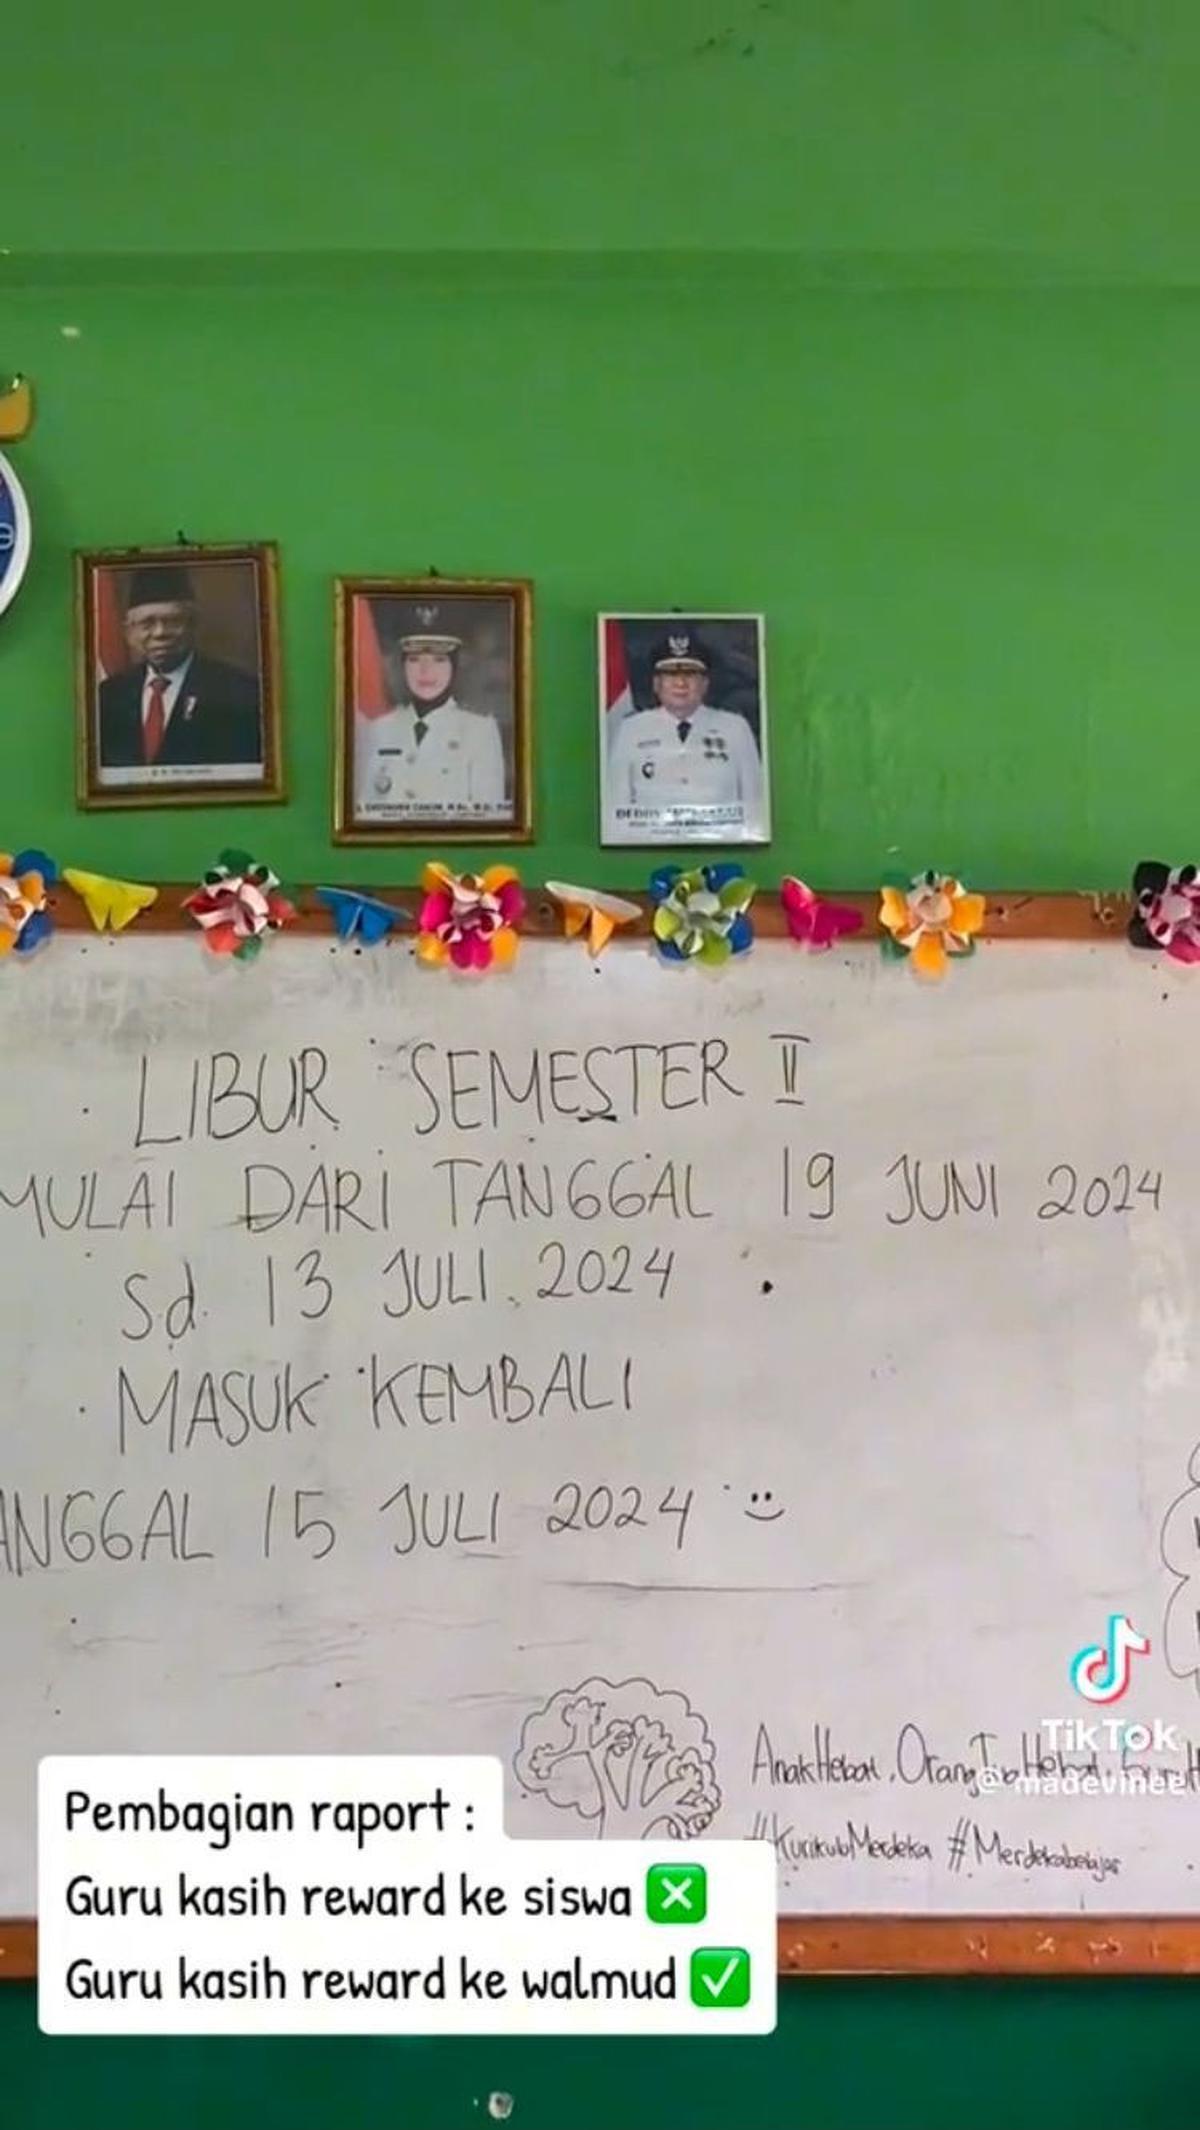 LIBUR SEMESTER II
MULAI DARI TANGGAL 19 JUNI 2024
Sd. 13 JULI 2024
MASUK KEMBALI
ANGGAL 15 JULI 2024
TikTok
AnakHebat, Orang
#KurikulMerdeka #Merdekabelajar
Pembagian raport :
Guru kasih reward ke siswa ❎
Guru kasih reward ke walmud ✅